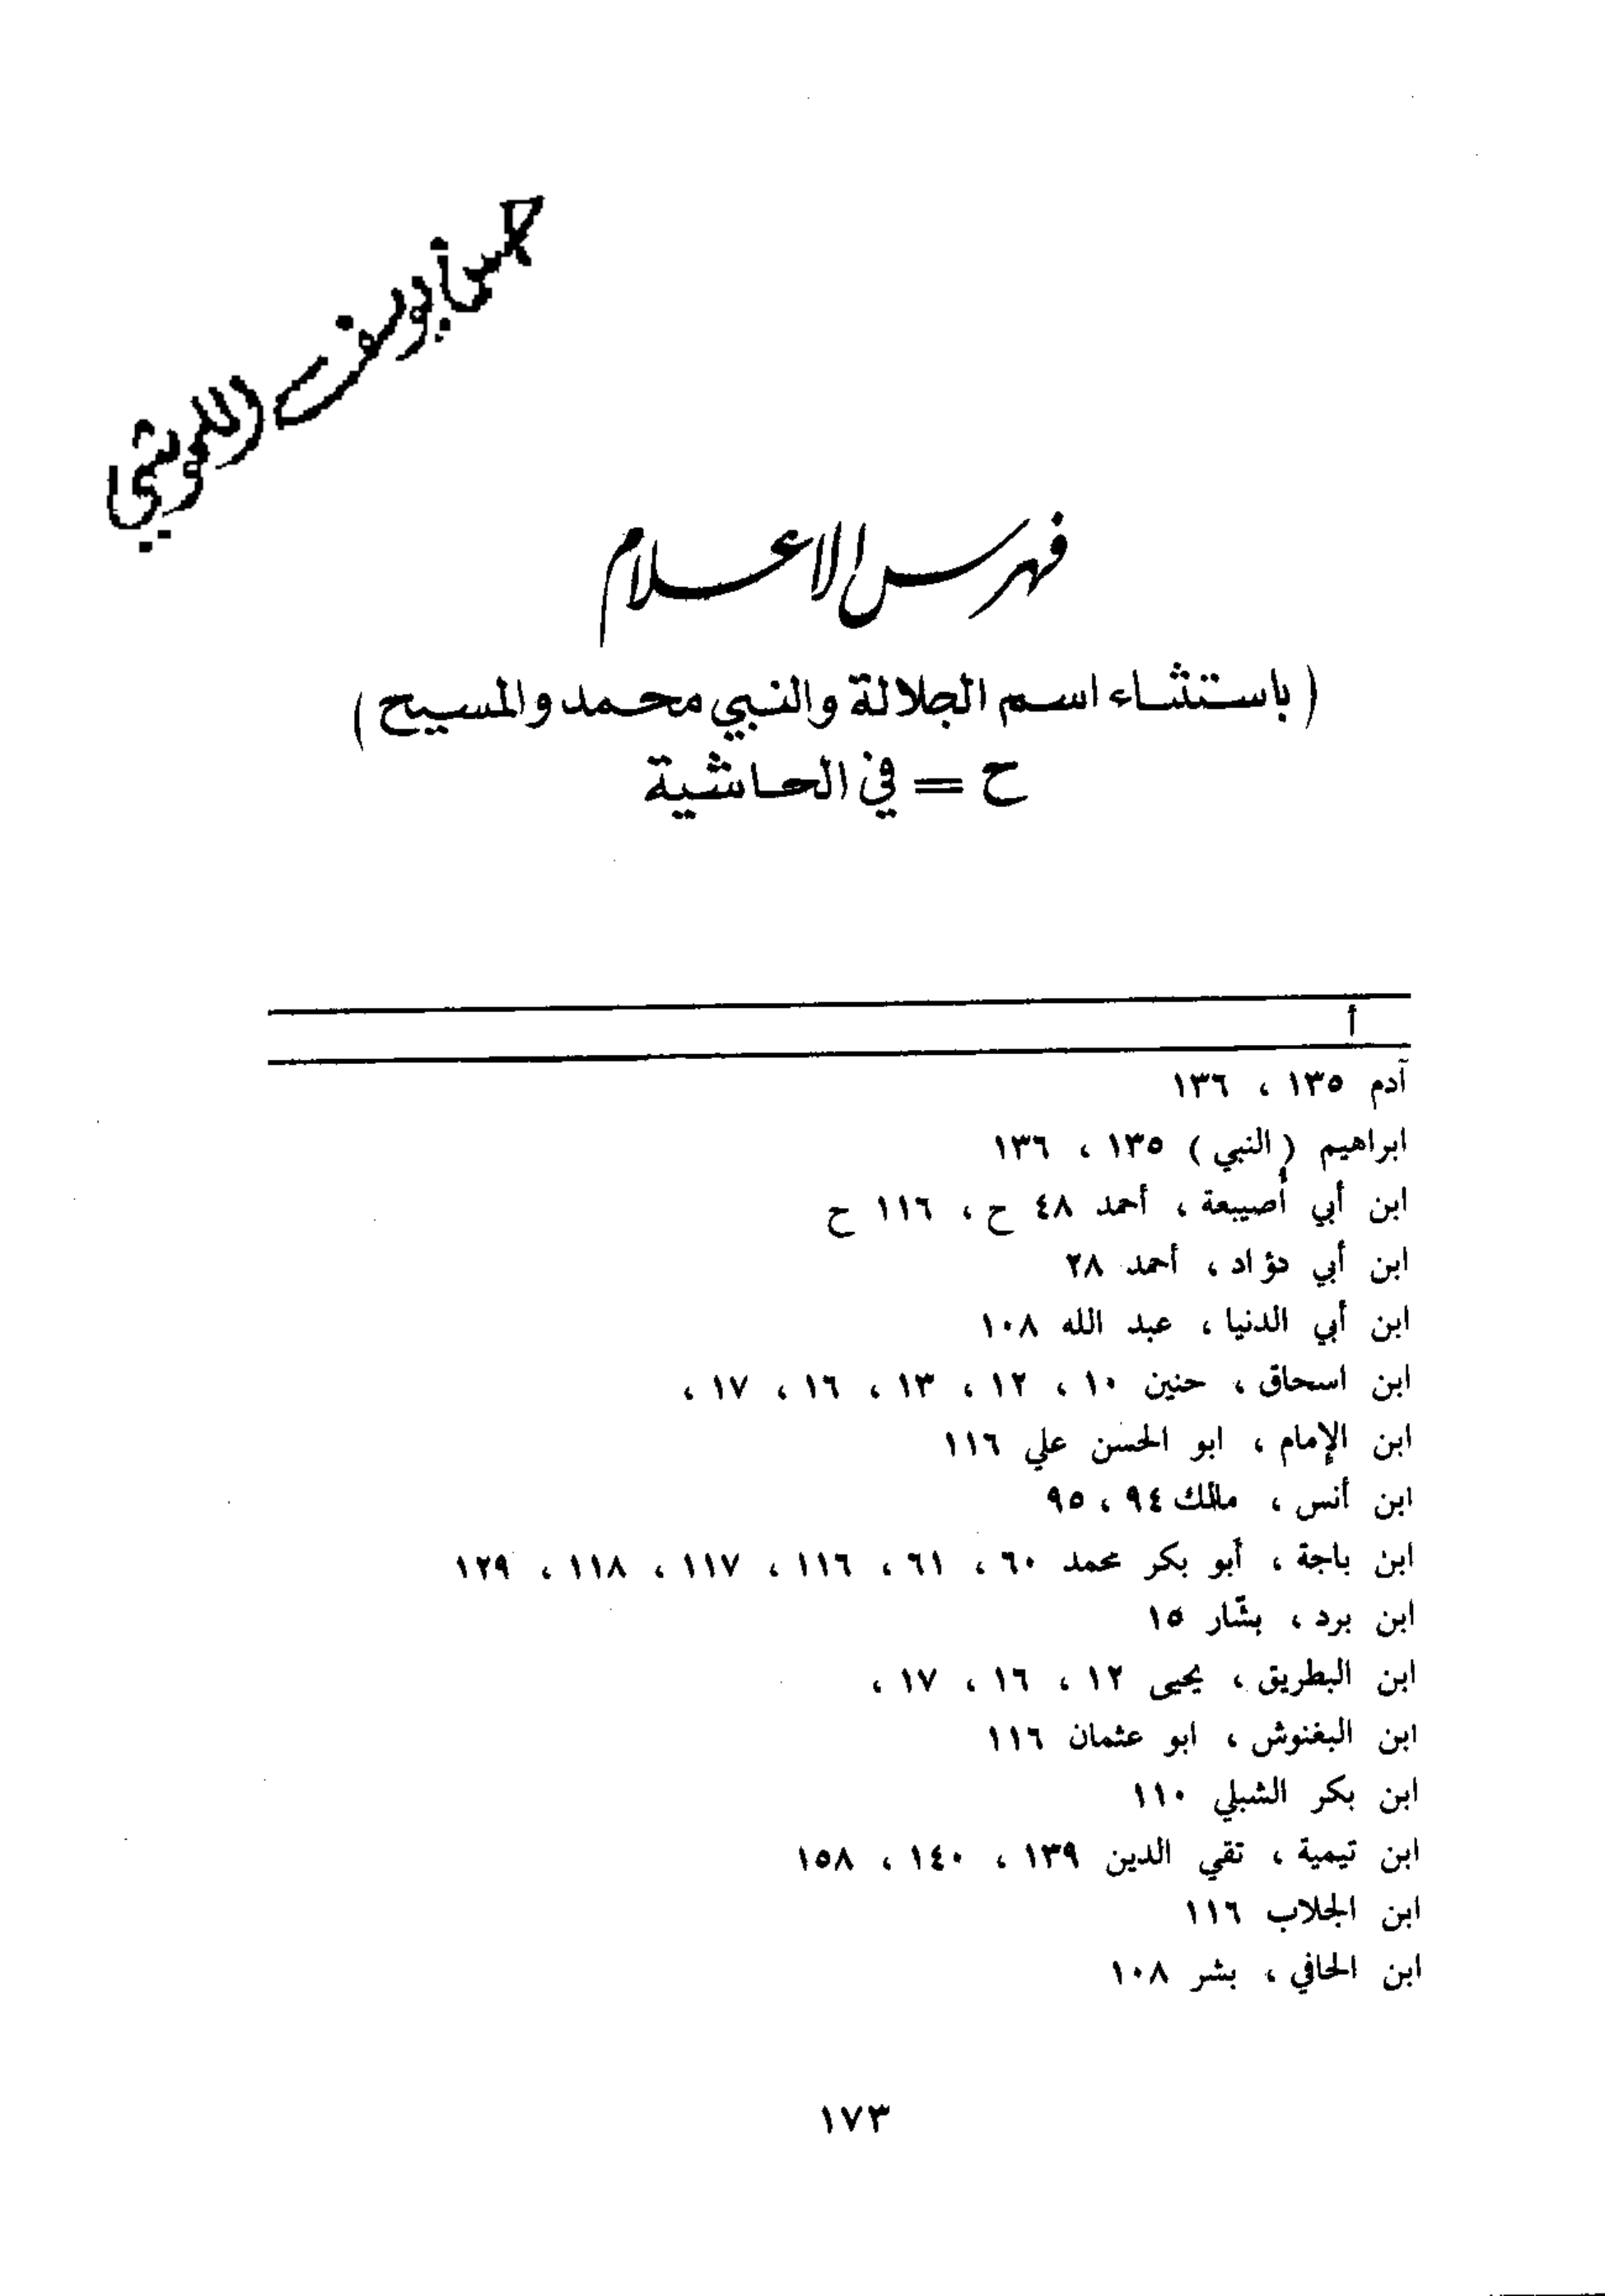 فهرس الاعلام
(باستثناء اسم الجلالة والنبي محمد والمسيح)
ح = في الحاشية
أ
آدم ١٣٥ ، ١٣٦
ابراهيم (النبي) ١٣٥ ، ١٣٦
ابن أبي أُصيبعة ، أحمد ٤٨ ح ، ١١٦ ح
ابن أبي دؤاد ، أحمد ٢٨
ابن أبي الدنيا ، عبد الله ١٠٨
ابن اسحاق ، حنين ١٠ ، ١٢ ، ١٣ ، ١٦ ، ١٧ ،
ابن الإمام ، ابو الحسن علي ١١٦
ابن أنس ، مالك ٩٤ ، ٩٥
ابن باجة ، أبو بكر محمد ٦٠ ، ٦١ ، ١١٦ ، ١١٧ ، ١١٨ ، ١٢٩
ابن برد ، بشّار ١٥
ابن البطريق ، يحيى ١٢ ، ١٦ ، ١٧ ،
ابن البغنوش ، ابو عثمان ١١٦
ابن بكر الشبلي ١١٠
ابن تيمية ، تقي الدين ١٣٩ ، ١٤٠ ، ١٥٨
ابن الجلاب ١١٦
ابن الحافي ، بشر ١٠٨
١٧٣